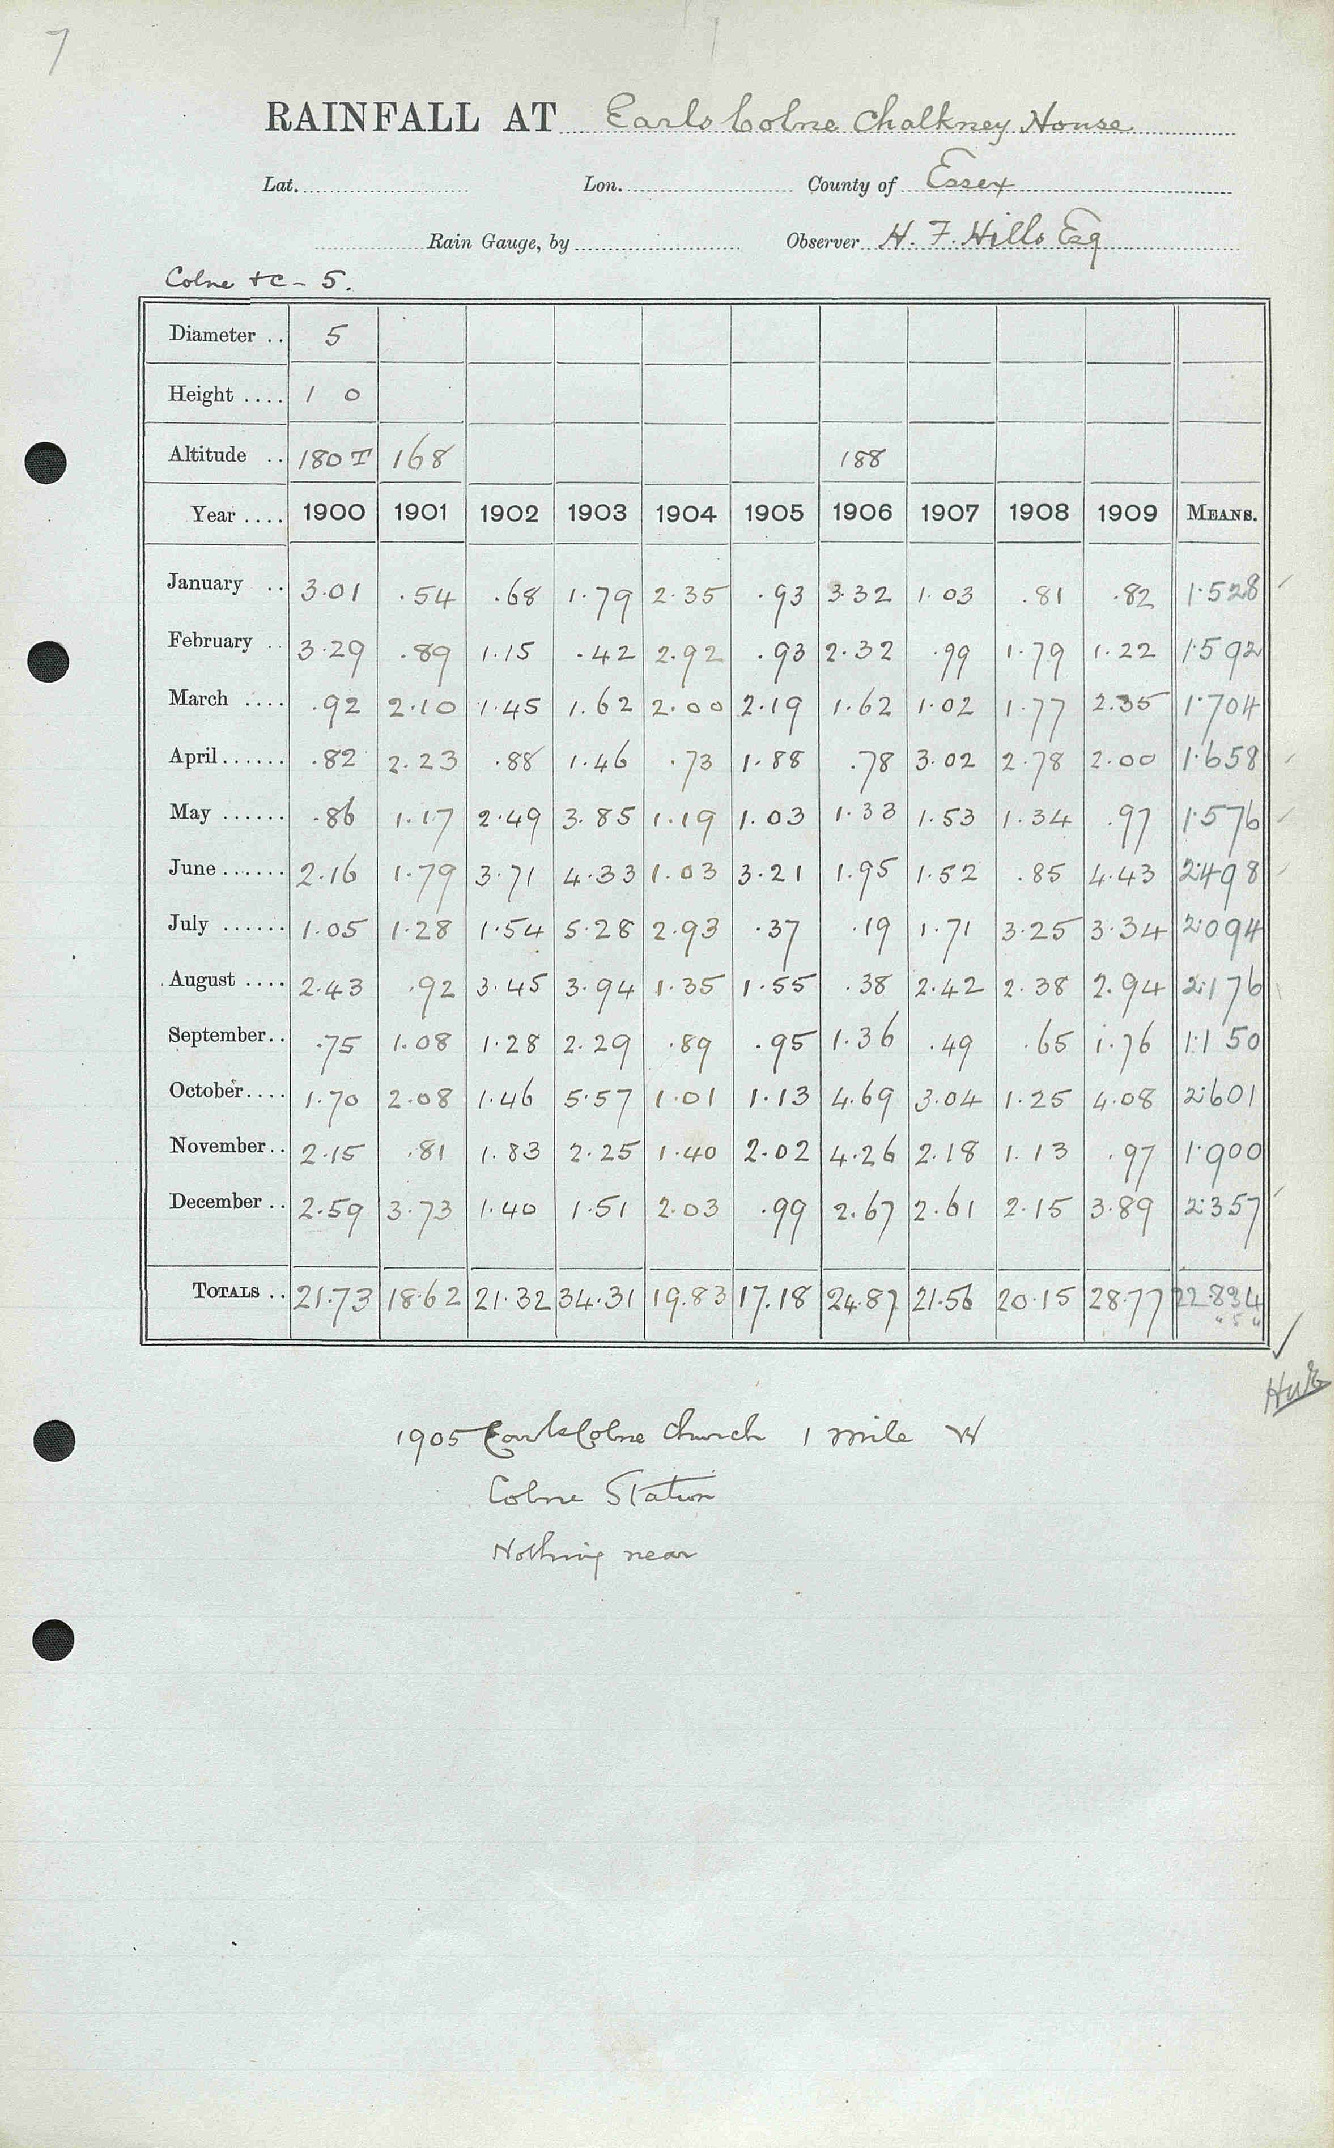 7
RAINFALL AT Earls Colne Chalkney House
Lat. Lon. County of Essex
Rain Gauge, by Observer H. F. Hills Esq
Colne &c - 5.
Diameter .. 5
Height .... 1 0
Altitude .. 180 T 168 188
Year .... 1900 1901 1902 1903 1904 1905 1906 1907 1908 1909 MEANS.
January .. 3.01 .54 .68 1.79 2.35 .93 3.32 1.03 .81 .82 1.528
February .. 3.29 .89 1.15 .42 2.92 .93 2.32 .99 1.79 1.22 1.592
March .... .92 2.10 1.45 1.62 2.00 2.19 1.62 1.02 1.77 2.35 1.704
April...... .82 2.23 .88 1.46 .73 1.88 .78 3.02 2.78 2.00 1.658
May ...... .86 1.17 2.49 3.85 1.19 1.03 1.33 1.53 1.34 .97 1.576
June...... 2.16 1.79 3.71 4.33 1.03 3.21 1.95 1.52 .85 4.43 2.498
July ...... 1.05 1.28 1.54 5.28 2.93 .37 .19 1.71 3.25 3.34 2.094
August .... 2.43 .92 3.45 3.94 1.35 1.55 .38 2.42 2.38 2.94 2.176
September.. .75 1.08 1.28 2.29 .89 .95 1.36 .49 .65 1.76 1.150
October.... 1.70 2.08 1.46 5.57 1.01 1.13 4.69 3.04 1.25 4.08 2.601
November.. 2.15 .81 1.83 2.25 1.40 2.02 4.26 2.18 1.13 .97 1.900
December .. 2.59 3.73 1.40 1.51 2.03 .99 2.67 2.61 2.15 3.89 2.357
TOTALS .. 21.73 18.62 21.32 34.31 19.83 17.18 24.87 21.56 20.15 28.77 22.834
" 5 "
1905 Earls Colne Church 1 mile W
Colne Station
Nothing near